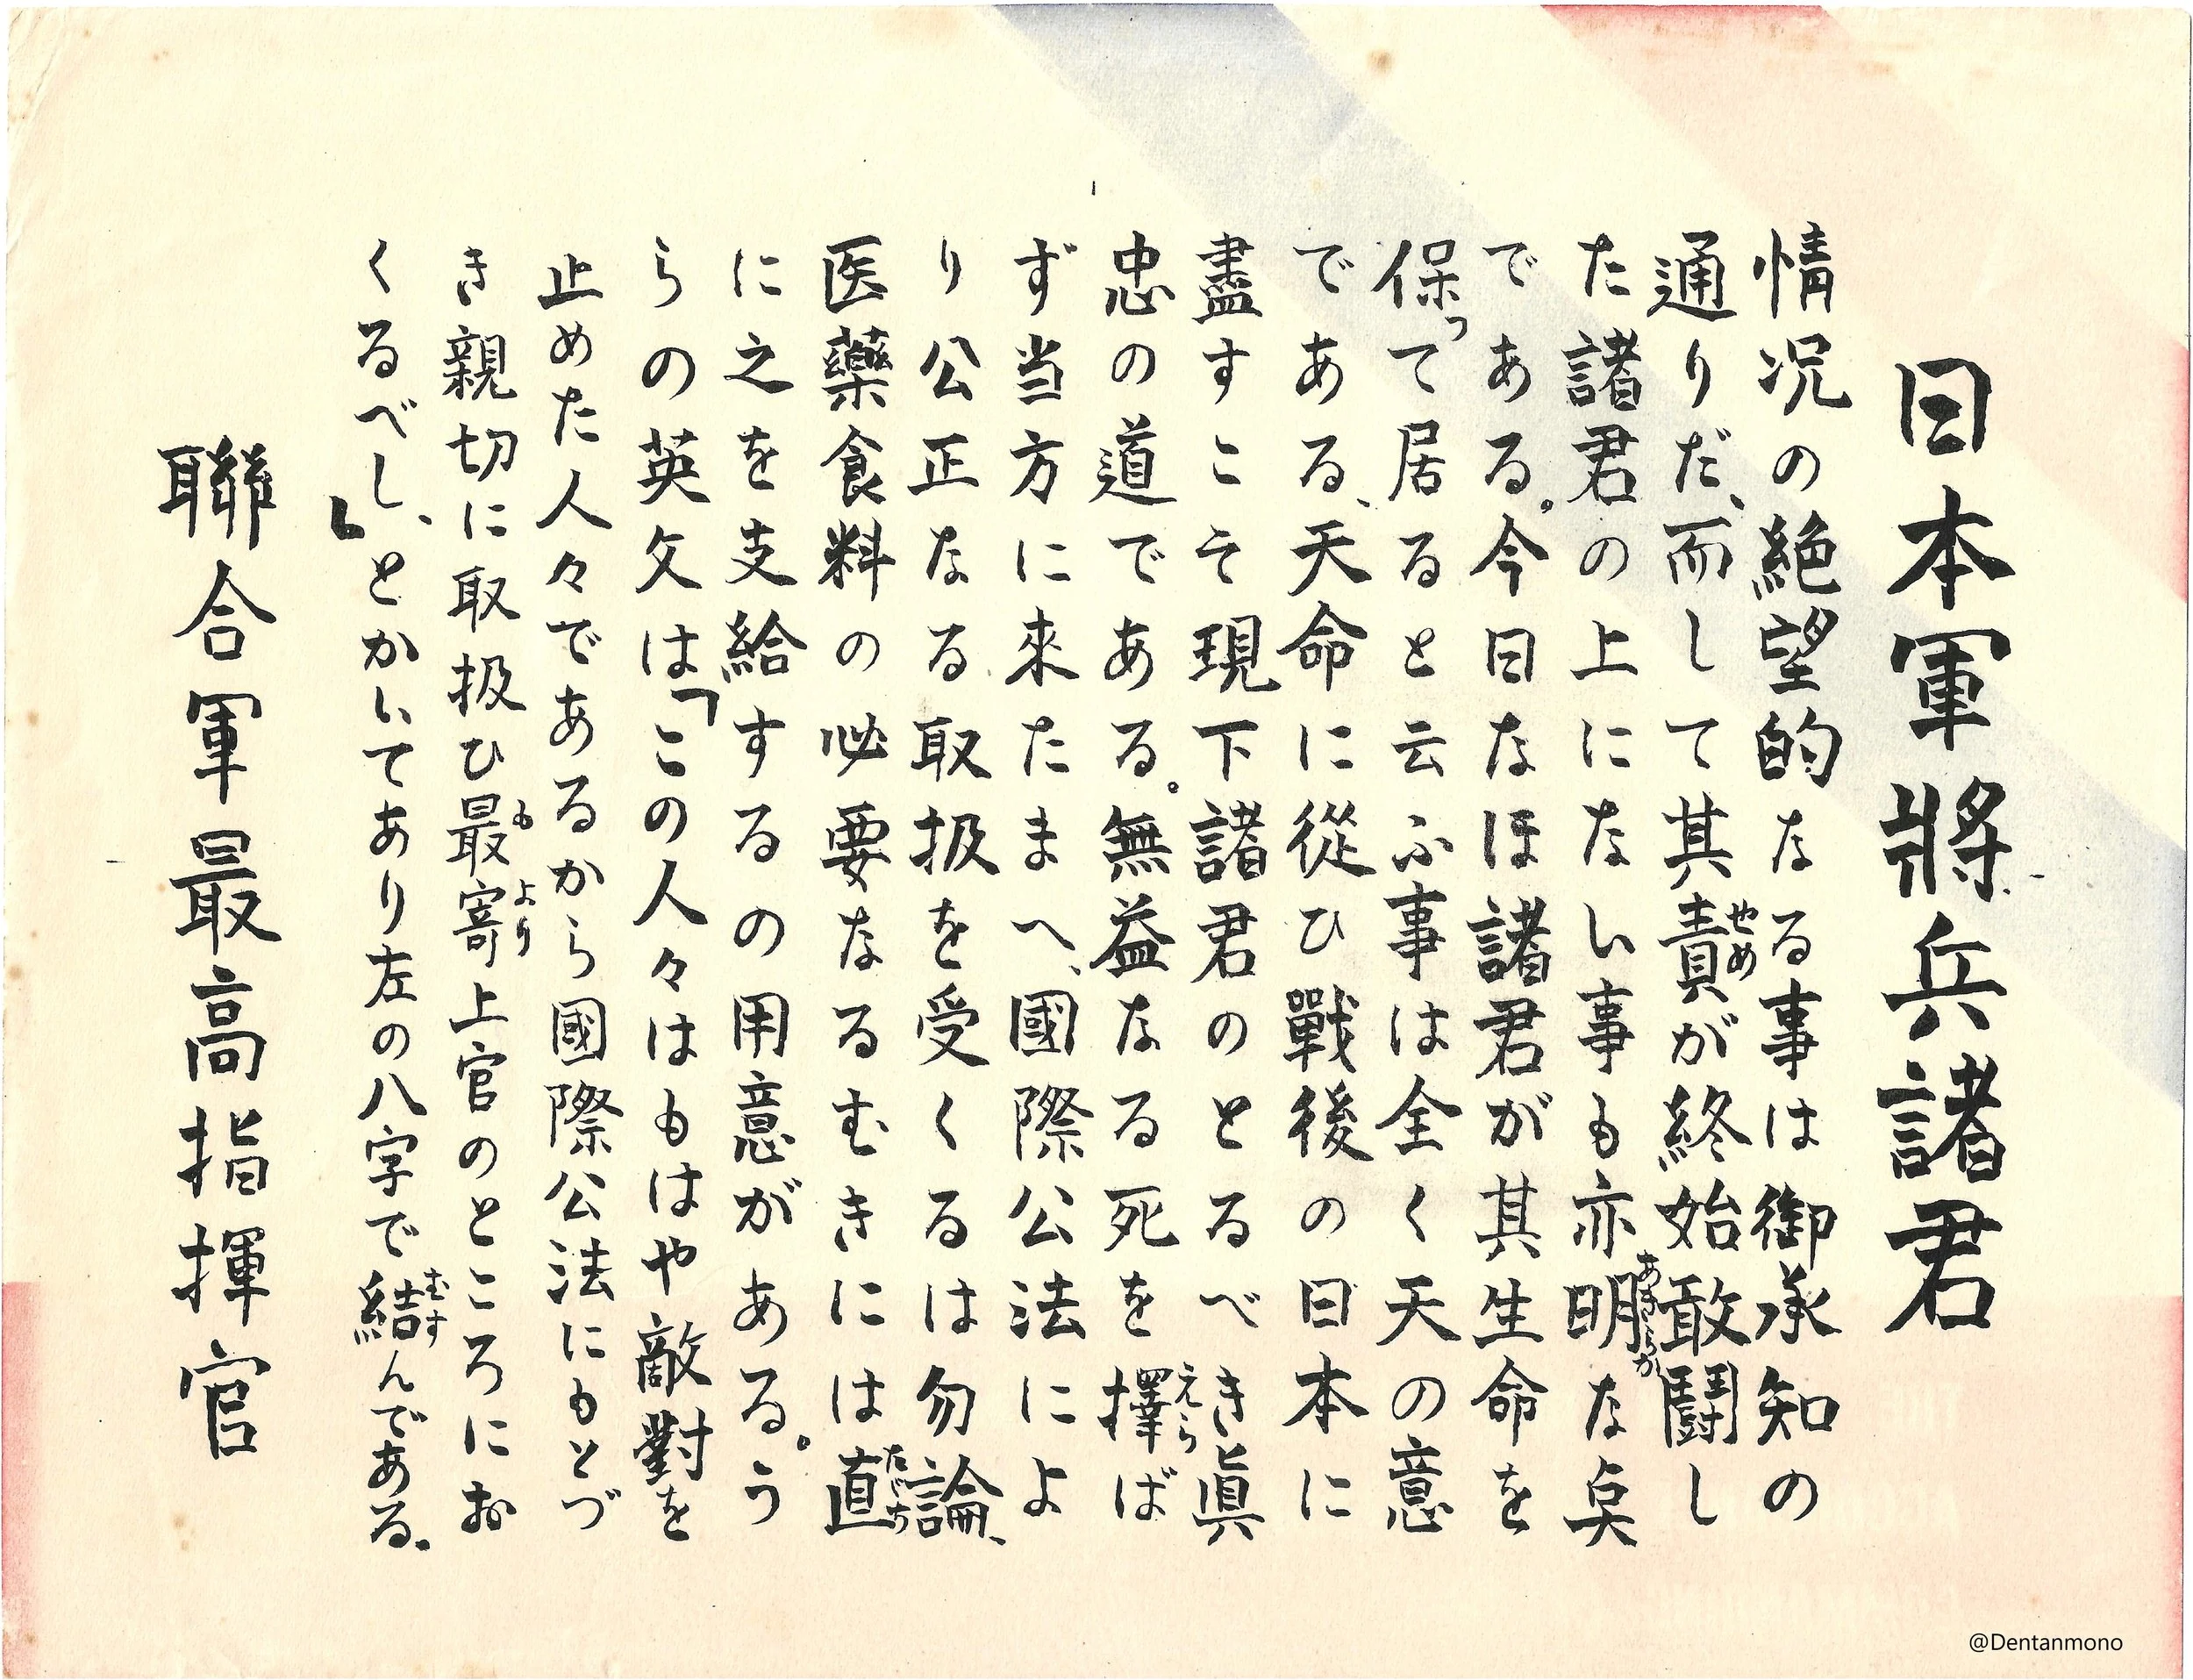 日本軍將兵諸君
情況の絶望的なる事は御承知の
通りだ、而して其責が終始敢鬪し
せめ
た諸君の上にない事も亦明な点
あきらか
である。今日なほ諸君が其生命を
保って居ると云ふ事は全く天の意
である、天命に從ひ戰後の日本に
盡すこそ現下諸君のとるべき眞
忠の道である。無益なる死を擇ば
えら
ず当方に來たまへ、國際公法によ
り公正なる取扱を受くるは勿論、
医藥食料の必要なるむきには直
たゞち
に之を支給するの用意がある。う
らの英文は「この人々はもはや敵對を
止めた人々であるから國際公法にもとづ
き親切に取扱ひ最寄上官のところにお
も より
くるべし、」とかいてあり左の八字で結んである.
むす
聯合軍最高指揮官
@Dentanmono